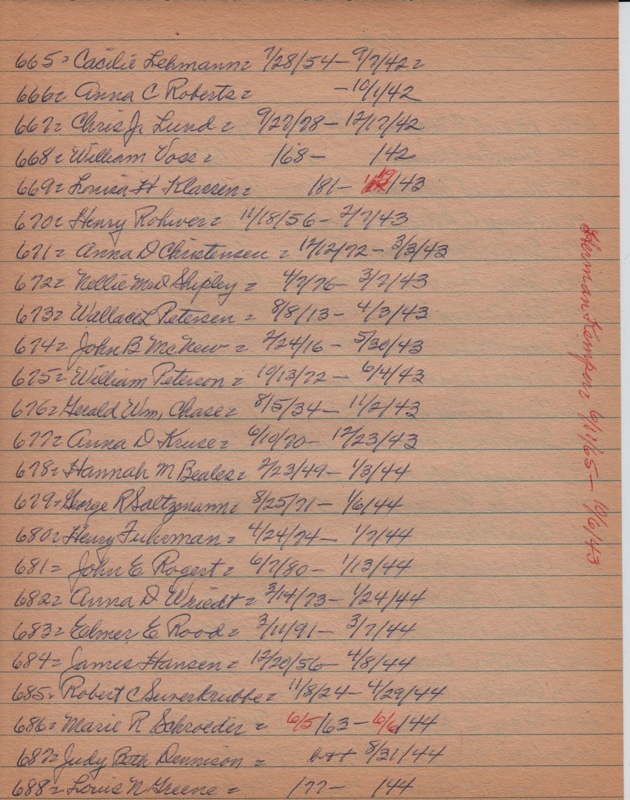 665= Cacilie Lehmann= 7/28/54 - 9/7/42=
666= Anna C Roberts= - 10/1/42
667= Chris J. Lund= 9/27/78 - 12/17/42
668= William Voss= /68 - /42
669= Louisa H Klassen= /81 - /43
670= Henry Rohwer= 11/18/56 - 2/7/43
671= Anna D Christensen = 12/12/72 - 3/3/43
672= Nellie McD Shipley 4/7/76 - 3/7/43
673= Wallace L Petersen = 8/8/13 - 4/3/43
674= John B McNew = 2/24/16 - 5/30/43
675= William Peterson = 10/13/72 - 6/4/43
676= Gerald Wm, Chase= 8/5/34 - 11/2/43
677= Anna D Kruse= 6/10/70 - 12/23/43
678= Hannah M Beales= 2/23/49 - 1/3/44
679= George R Saltzmann= 8/25/71 - 1/6/44
680= Henry Fuhrman= 4/24/74 - 1/7/44
681= John E Rogert= 6/7/80 - 1/13/44
682= Anna D Wriedt= 3/14/73 - 1/24/44
683= Elmer E Rood= 3/11/91 - 3/7/44
684= James Hansen= 12/20/56 - 4/8/44
685= Robert C Suverkrubbe= 11/8/24 - 4/29/44
686= Marie R Schroeder = 6/5/63 - 6/6/44
687= Judy Beth Dennison = 8/31/44
688= Louis N Greene= /77 - /44
Herman Kempen 6/11/65 - 10/6/43